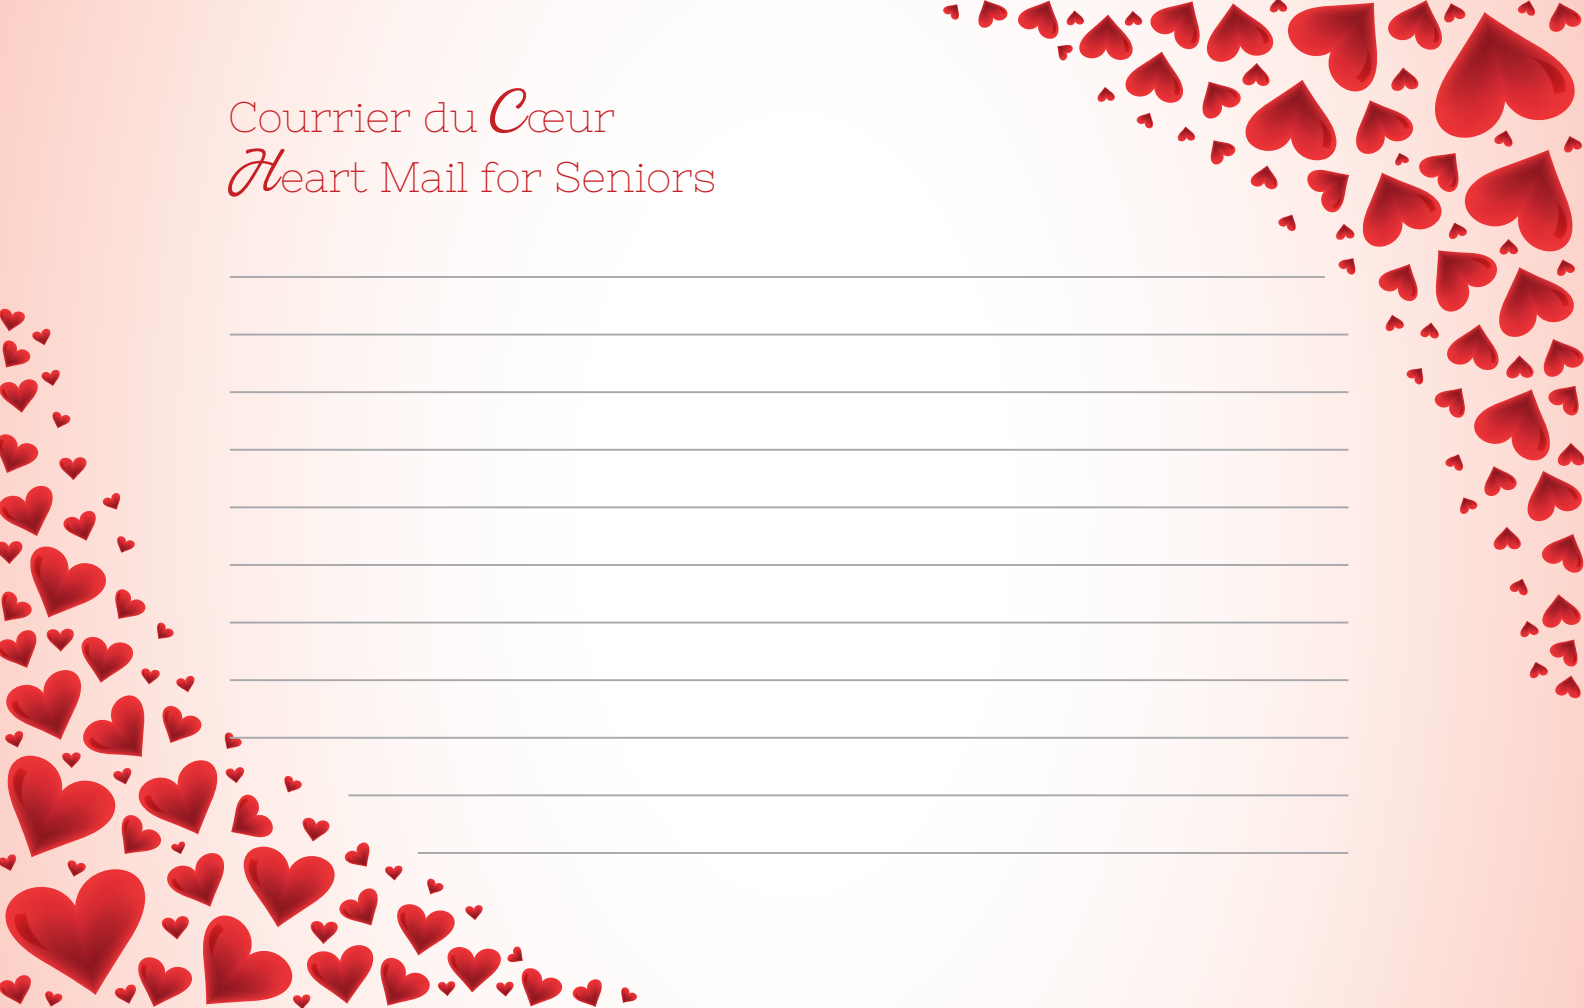 Courrier du Cœur
Heart Mail for Seniors